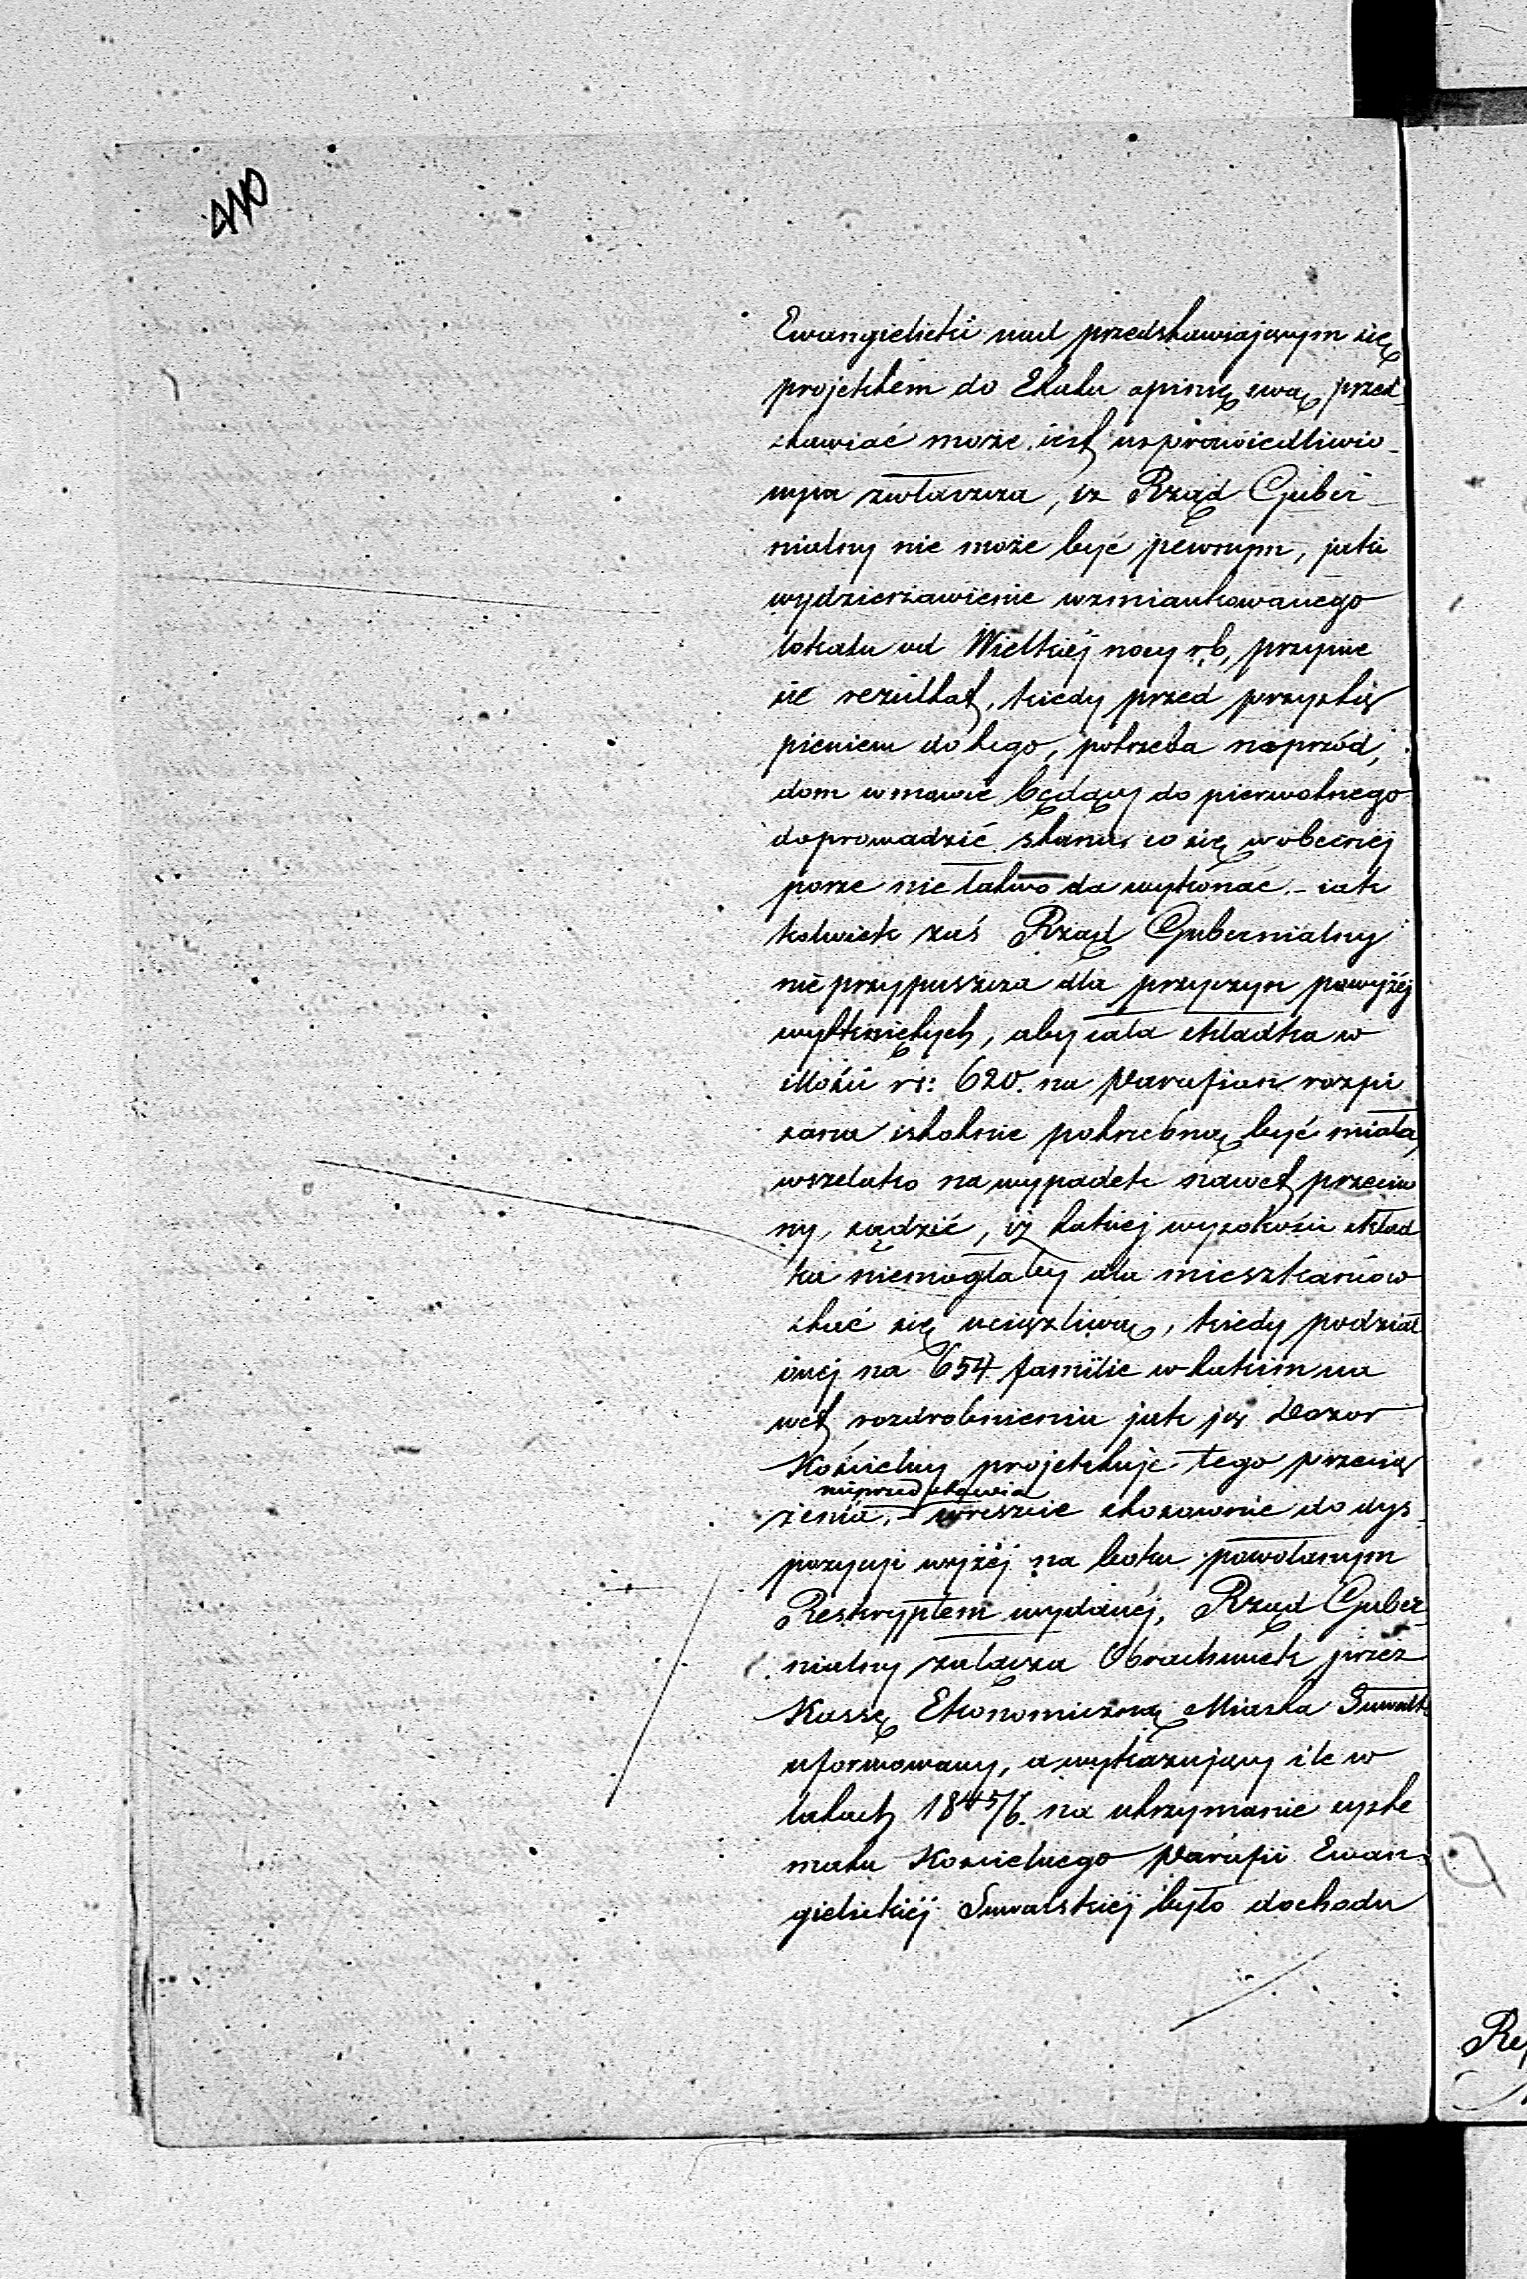 Ewangielicki nad przedstawiającym się
projektem do Etatu opinię swą przed-
stawiać może iest usprawiedliwio-
nym zwłaszcza, iż Rząd Guber-
nialny nie może być pewnym, jaki
wydzierżawienie wzmiankowanego
lokalu od Wielkiéj nocy r.b, przynie
sie rezultat, kiedy przed przystą
pieniem do tego, potrzeba naprzód,
dom w mowie będący do pierwotnego
doprowadzić stanu, co się w obecnéj
porze nie łatwo da wykonać. – iak
kolwiek zaś Rząd Gubernialny
nie przypuszcza dla przyczyn powyżéj
wytkniętych, aby cała składka w
ilości rs: 620. na Parafian rozpi
sana istotnie potrzebną być miała,
wszelako na wypadek nawet przeciw
ny, sądzić, iż takiej wysokości skład
ka niemogłaby dla mieszkańców
stać się uciążliwą, kiedy podział
onéj na 654 familie w takim na
wet rozdrobnieniu jak ją Dozor
Kościelny projektuje tego przecią
nieprzedstawia
żenia, – wreszcie stosownie do dys-
pozycji wyżéj na boku powołanym
Reskryptem wydanéj, Rząd Guber-
nialny załącza Obrachunek przez
Kassę Ekonomiczną Miasta Suwałk
uformowany, a wykazujący ile w
latach 1845/6. na utrzymanie syste
matu Kościelnego Parafii Ewan-
gielickiéj Suwalskiéj było dochodu